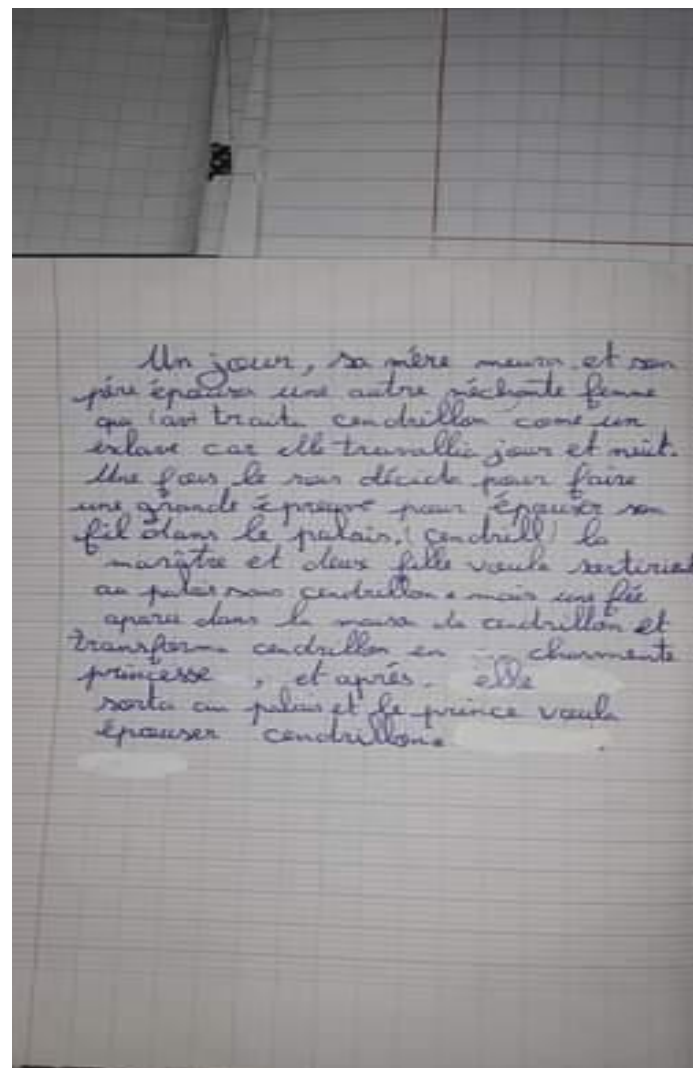 Un jour, sa mère meura et son
père épousa une autre méchante femme
qui (av) traita cendrillon come un
esclave car elle travallie jour et nuit.
Une fois le rois décida pour faire
une grande épreuve pour épouser son
fil dans le palais. (cendrill) la
marâtre et deux fille voula
au palais sans cendrillon. mais une fée
aparu dans la maison de cendrillon et
transforma cendrillon en charmente
princesse, et aprés. elle
sorta au palais et le prince voula
épouser cendrillon.